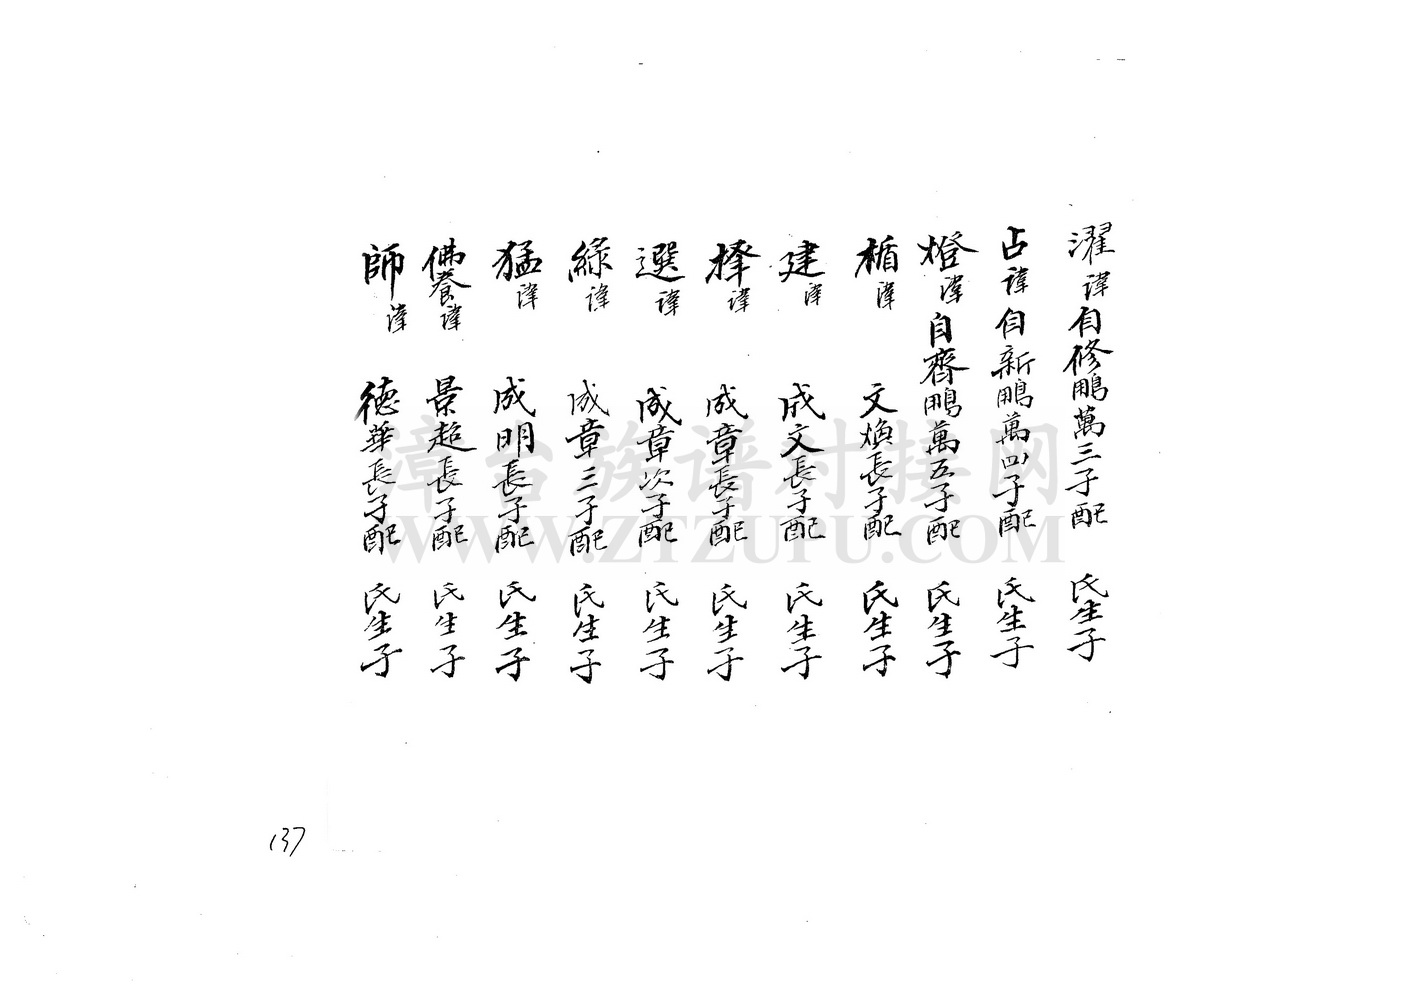 濯諱自修鵬萬三子配 氏生子
占諱自新鵬萬四子配 氏生子
燈諱自齊鵬萬五子配 氏生子
楯諱 文煥長子配 氏生子
建諱 成文長子配 氏生子
擇諱 成章長子配 氏生子
選諱 成章次子配 氏生子
綠諱 成章三子配 氏生子
猛諱 成明長子配 氏生子
佛養諱 景超長子配 氏生子
師諱 德華長子配 氏生子
漳台族谱对接网
WWW.ZTZUPU.COM
137